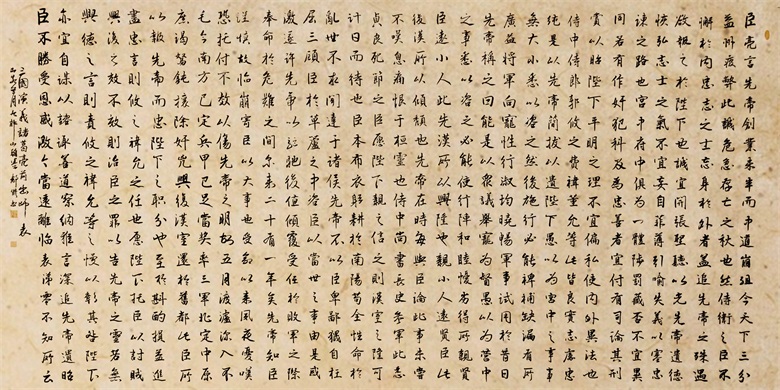 臣亮言先帝創業未半而中道崩殂今天下三分
益州疲弊此誠危急存亡之秋也然侍衛之臣不
懈於內忠志之士忘身於外者蓋追先帝之殊遇
欲報之於陛下也誠宜開張聖聽以光先帝遺德
恢弘志士之氣不宜妄自菲薄引喻失義以塞忠
諫之路也宮中府中俱為一體陟罰臧否不宜異
同若有作奸犯科及為忠善者宜付有司論其刑
賞以昭陛下平明之理不宜偏私使內外異法也
侍中侍郎郭攸之費禕董允等此皆良實志慮忠
純是以先帝簡拔以遺陛下愚以為宮中之事事
無大小悉以咨之然後施行必能裨補闕漏有所
廣益將軍向寵性行淑均曉暢軍事試用於昔日
先帝稱之曰能是以眾議舉寵為督愚以為營中
之事悉以咨之必能使行陣和睦優劣得所親賢
臣遠小人此先漢所以興隆也親小人遠賢臣此
後漢所以傾頹也先帝在時每與臣論此事未嘗
不嘆息痛恨於桓靈也侍中尚書長史參軍此悉
貞良死節之臣願陛下親之信之則漢室之隆可
計日而待也臣本布衣躬耕於南陽苟全性命於
亂世不求聞達于諸侯先帝不以臣卑鄙猥自枉
屈三顧臣於草廬之中咨臣以當世之事由是感
激遂許先帝以驅馳後值傾覆受任於敗軍之際
奉命於危難之間爾來二十有一年矣先帝知臣
謹慎故臨崩寄臣以大事也受命以來夙夜憂嘆
恐托付不效以傷先帝之明故五月渡瀘深入不
毛今南方已定兵甲已足當獎率三軍北定中原
庶竭駑鈍攘除奸兇興復漢室還於舊都此臣所
以報先帝而忠陛下之職分也至於斟酌損益進
盡忠言則攸之禕允之任也願陛下托臣以討賊
興復之效不效則治臣之罪以告先帝之靈若無
興德之言則責攸之禕允等之慢以彰其咎陛下
亦宜自謀以諮諏善道察納雅言深追先帝遺詔
臣不勝受恩感激今當遠離臨表涕零不知所云
三國演義諸葛亮前出師表